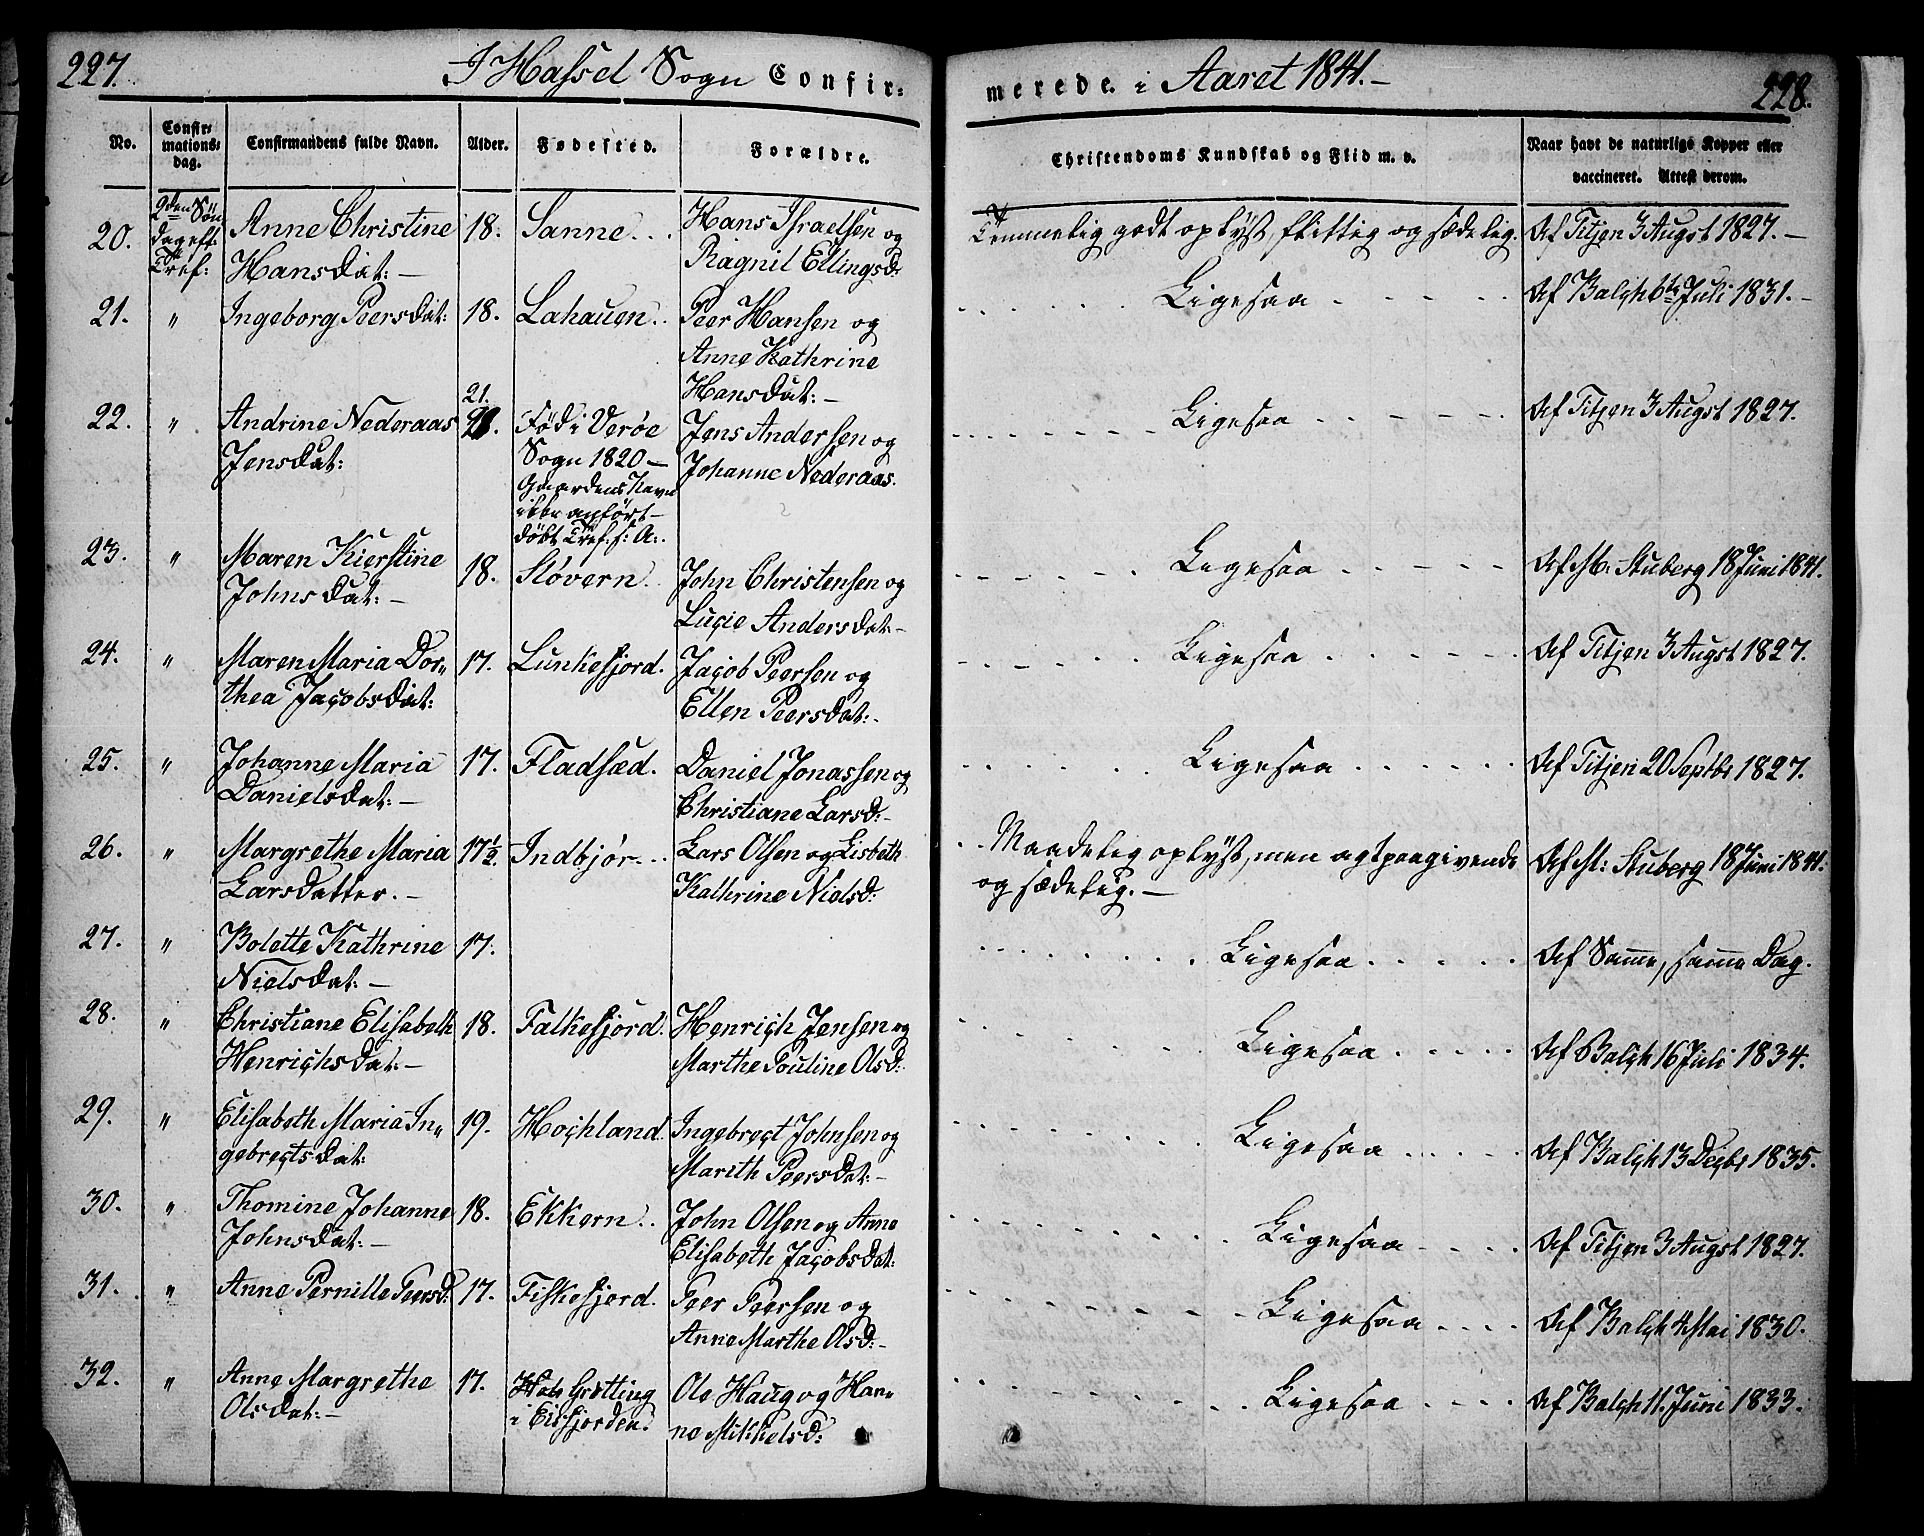 227.
I Hassel Sogn Confir-
No.
Confir-
mations-
dag.
Confirmandens fulde Navn.
Alder.
Fødested.
Forældre.
20.
2den Søn
dag eft.
Tref:
Anne Christine
Hansdat: –
18.
Sanne..
Hans Israelsen og
Ragnil Ellingsd:
21.
"
Ingeborg Peersdat:
18.
Lahauen..
Peer Hansen og
Anne Kathrine
Hansdat: –
22.
"
Andrine Nederaas
Jensdat:
21.
Fød i Verøe
Sogn 1820 –
Gaardens Navn
ikke anført –
døbt Tref. f: A:.
Jens Andersen og
Johanne Nederaas.
23.
"
Maren Kierstine
Johnsdat: –
18.
Støvern..
John Christensen og
Lucie Andersdat: –
24.
"
Maren Maria Dor„
thea Jacobsdat:
17.
Lunkefjord.
Jacob Peersen og
Ellen Peersdat:.
25.
"
Johanne Maria
Danielsdat: –
17.
Fladsæd.
Daniel Jonassen og
Christiane Larsd: –
26.
"
Margrethe Maria
Larsdatter. –
17½.
Indbjør...
Lars Olsen og Lisbeth
Kathrine Nielsd:
27.
"
Bolette Kathrine
Nielsdat: –
17.
28.
"
Christiane Elisabeth
Henrichsdat: –
18.
Falkefjord.
Henrich Jensen og
Marthe Pouline Olsd:
29.
"
Elisabeth Maria In„
gebrectsdat:
19.
Hochland.
Ingebrect Johnsen og
Marith Peersdat: –
30.
"
Thomine Johanne
Johnsdat: –
18.
Ekkern..
John Olsen og Anne
Elisabeth Jacobsdat:
31.
"
Anne Pernille Peersd:
17.
Fiskefjord.
Peer Peersen og
Anne Marthe Olsd: –
32.
"
Anne Margrethe
Olsdat: –
17.
Grøtting
i Eisfjorden.
Ole Haug og Han„
ne Mikkelsd:
merede. i Aaret 1841. –
228.
Christendoms Kundskab og Flid m. v.
Naar havt de naturlige Kopper eller
vaccineret. Attest derom.
Temmelig godt oplyst, flittig og sædelig.
Af Titjen 3 Augst 1827. –
Ligesaa
Af Balch 6te Juli 1831. –
Ligesaa
Af Titjen 3 Augst 1827.
Ligesaa
Af M. Stuberg 18 Juni 1841.
Ligesaa
Af Titjen 3 Augst 1827.
Ligesaa
Af Titjen 20 Septbr 1827.
Maadelig oplyst, men agtpaagivende
og sædelig. –
Af M: Stuberg 18 Juni 1841.
Ligesaa
Af Samme, samme Dag.
Ligesaa
Af Balch 16 Juli 1834.
Ligesaa
Af Balch 13 Decbr 1835.
Ligesaa
Af Titjen 3 Augst 1827.
Ligesaa
Af Balch 4 Mai 1830.
Ligesaa
Af Balch 11. Juni 1833.